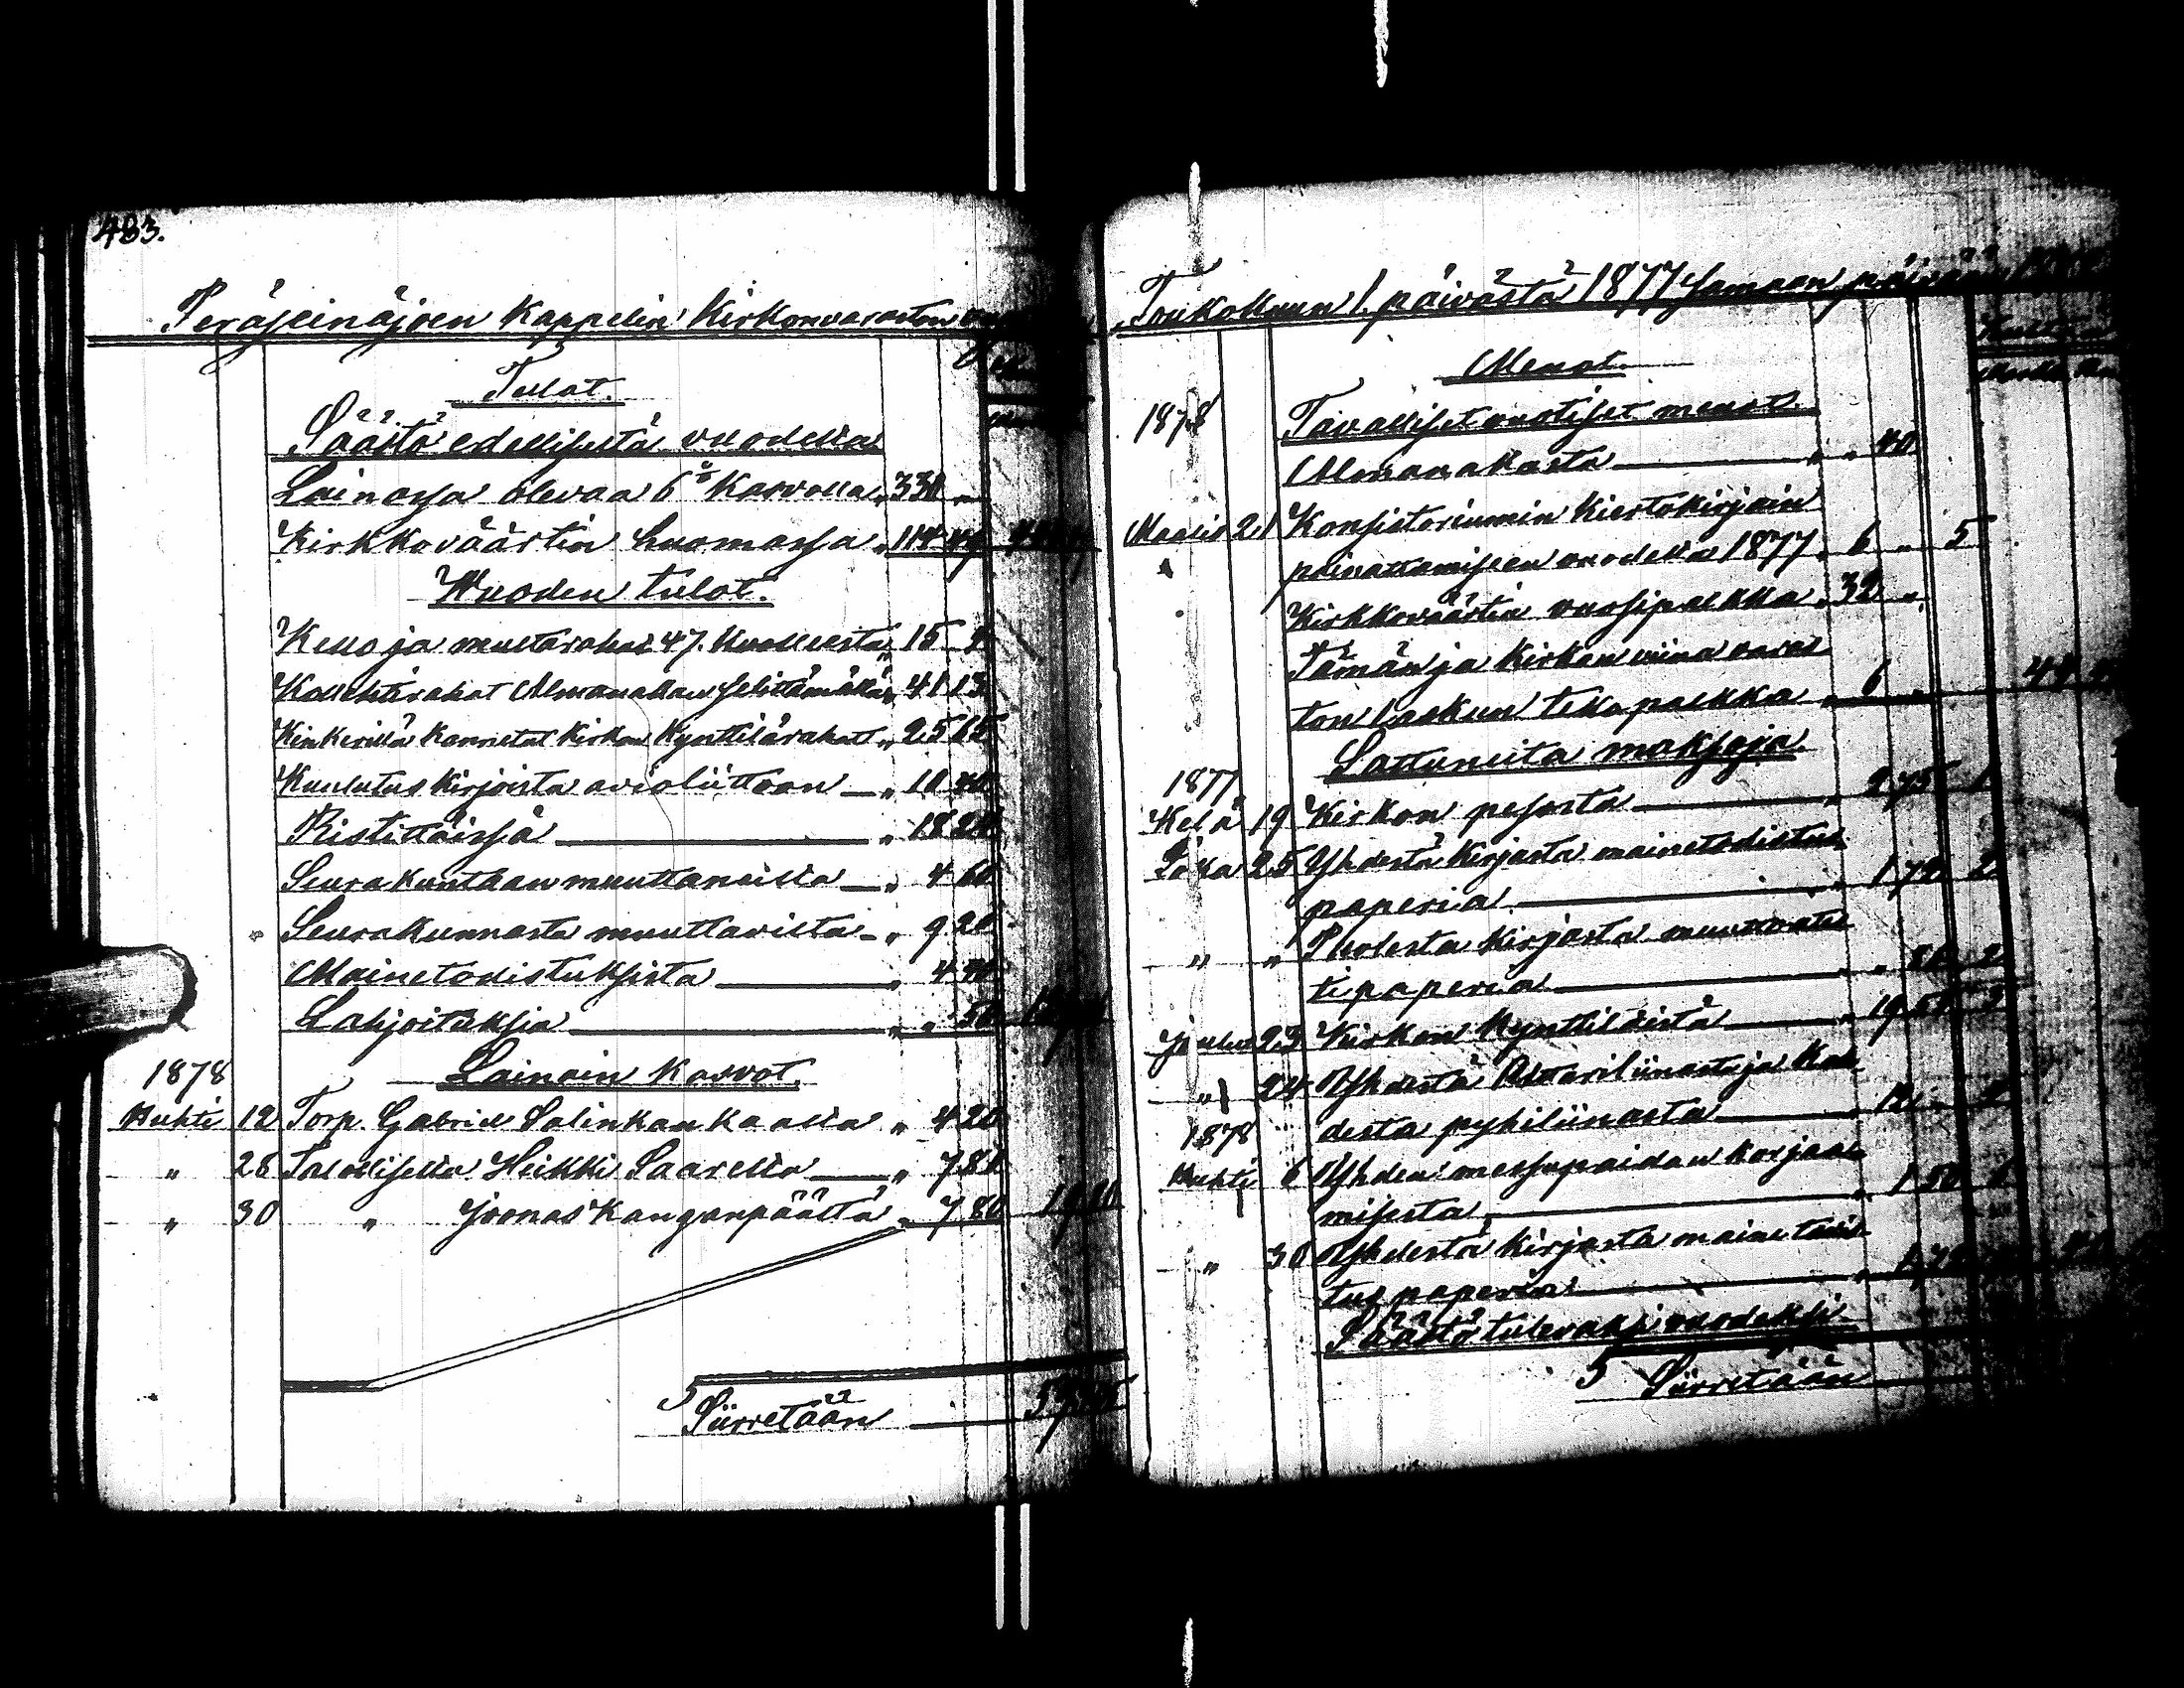 483.
Peräseinäjoen Kappelin Kirkonvaraston
Tulot.
Säästö edellisestä vuodelta
Lainassa olevaa 6 % Kasvolla „ 330 „
Kirkkoväärtin huomassa „ 114
Wuoden tulot.
Kello ja multarahat 47. Kuolleesta „ 15
Kollehtirahat Almanakan selittämällä „ 41 13
Kinkerillä kannetut Kirkon Kynttilärahat „ 25 65
Kuulutus Kirjoista avioliittoon „ 10 40
Ristittäissä „ 18 20
Seurakuntaan muuttaneilta „ 4 60
Seurakunnasta muuttavilta „ 9 20
Mainetodistuksista „ 4 40
Lahjoituksia „ „ 50
1878 Lainain Kasvot.
Huhti 12 Torp. Gabriel Salinkankaalta „ 4 20
„ 28 Talolliselta Heikki Saarelta „ 7 80
„ 30 „ Joonas Kanganpäältä „ 7 80
Siirretään
Toukokuun 1. päivästä 1877 samaan päivään
Menot.
1878 Tavalliset vuotiset menot.
Almanakasta „ „ 40
Maalis 21 Konsistoriumin Kiertokirjain
painattamiseen vuodelta 1877 „ 6 „ 5
Kirkkoväärtin vuosipalkka „ 32 „
Tämän ja Kirkon viina varas
ton laskun teko palkka „ 6 „
Sattuneita maksoja.
1877
Kesä 19 Kirkon pesosta „ 2 75 1
Loka 25 Yhdestä Kirjasta mainetodistus
paperia „ 1 72 2
„ „ Puolesta Kirjasta muuttoates
tipaperia „ „ 2
Joulu 23 Kirkon Kynttilöistä „ 19 3
„ 24 Yhdestä Altariliinasta ja Kah
1878 desta pyhiliinasta „ 12 „
Huhti 6 Yhden messupaidan korjaa
misesta „ 1 50
„ 30 Yhdestä Kirjasta maine todis
tus paperia „ 1 72
Säästö tulevaksi vuodeksi
Siirretään